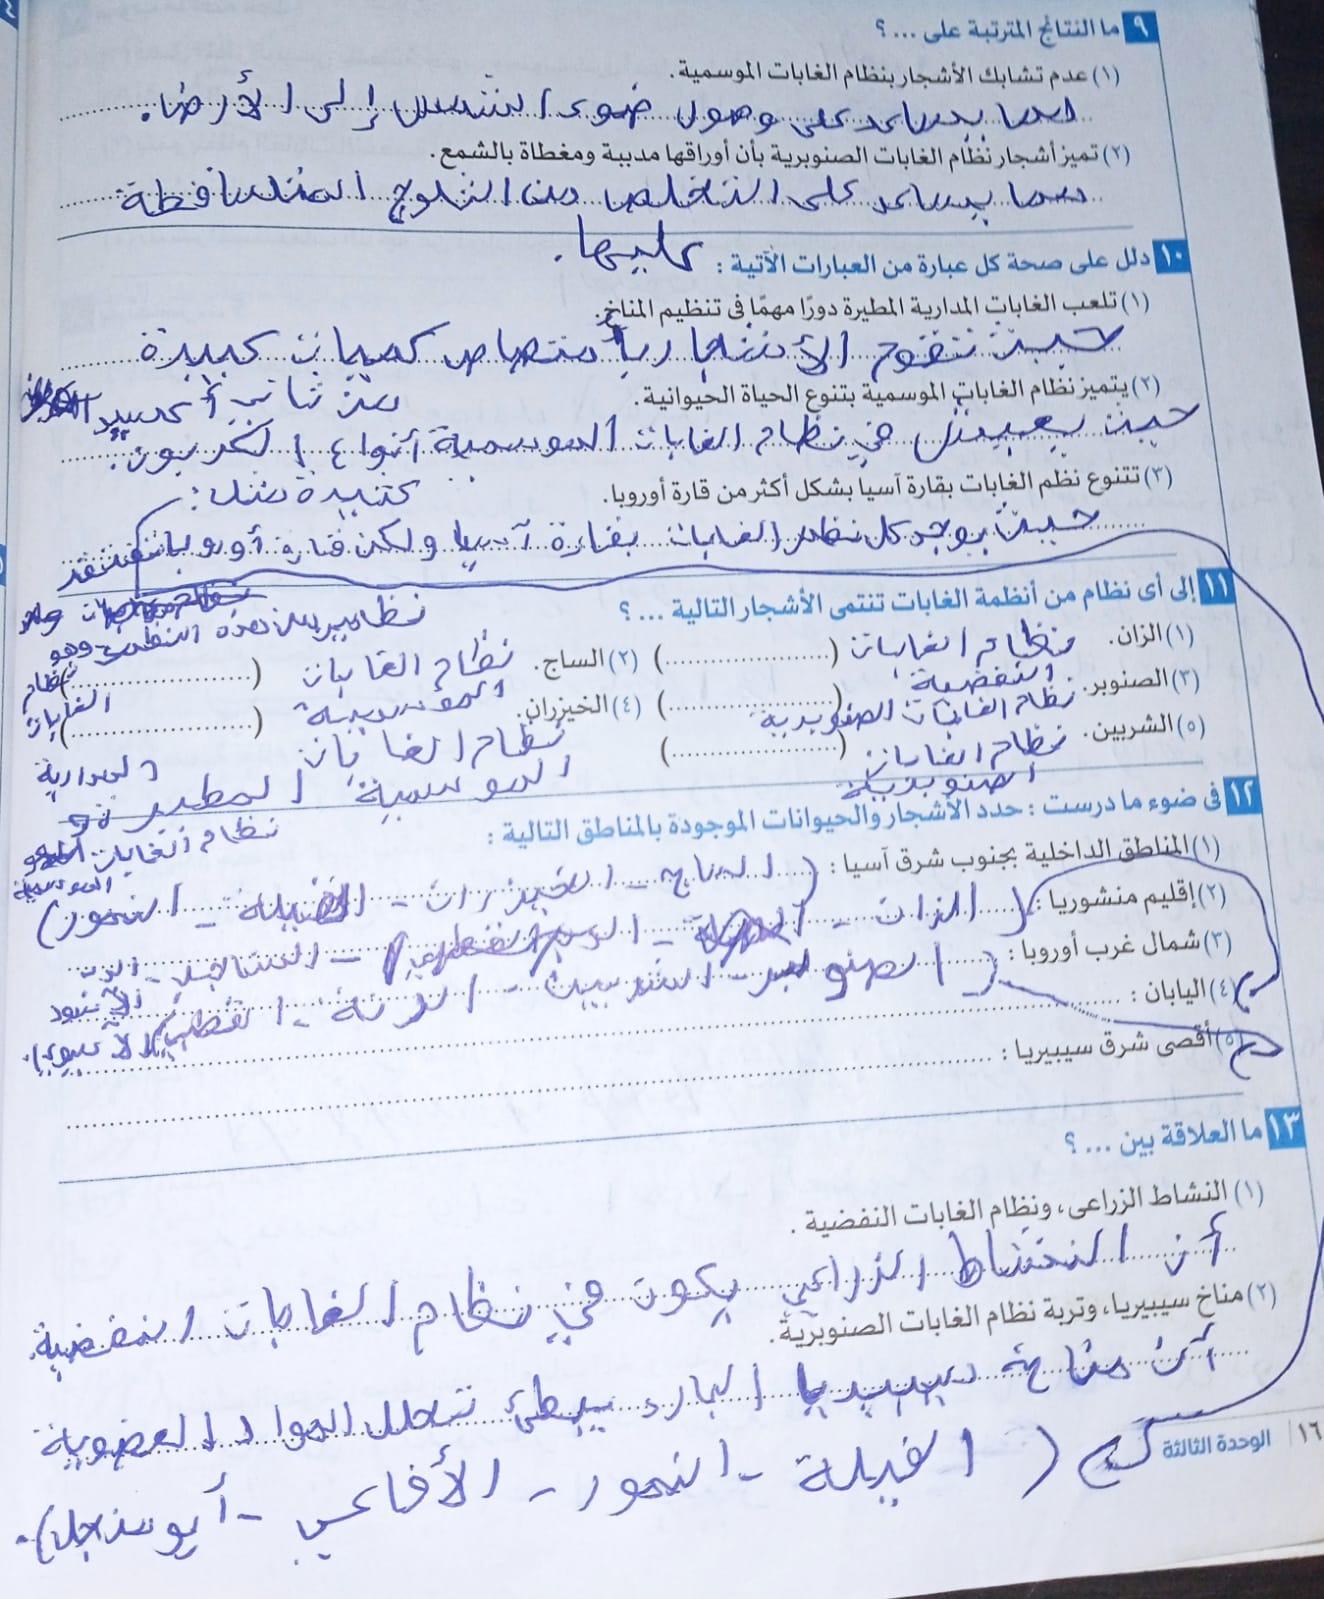 ٩ ما النتائج المترتبة على ... ؟
(١) عدم تشابك الأشجار بنظام الغابات الموسمية.
مما يساعد على وصول ضوء الشمس إلى الأرض.
(٢) تميز أشجار نظام الغابات الصنوبرية بأن أوراقها مدببة ومغطاة بالشمع.
مما يساعد على التخلص من الثلوج المتساقطة
عليها.
١٠ دلل على صحة كل عبارة من العبارات الآتية :
(١) تلعب الغابات المدارية المطيرة دورًا مهمًا فى تنظيم المناخ.
حيث تقوم الأشجار بامتصاص كميات كبيرة
من ثاني أكسيد
الكربون.
(٢) يتميز نظام الغابات الموسمية بتنوع الحياة الحيوانية.
حيث يعيش في نظام الغابات الموسمية أنواع
كثيرة مثل:
(٣) تتنوع نظم الغابات بقارة آسيا بشكل أكثر من قارة أوروبا.
حيث يوجد كل نظام الغابات بقارة آسيا ولكن قارة أوروبا تفتقد
نظامين من هذه النظم وهو
نظام
الغابات
المدارية
المطيرة
نظام الغابات
الموسمية
١١ إلى أى نظام من أنظمة الغابات تنتمى الأشجار التالية ... ؟
(١) الزان. (نظام الغابات النفضية)
(٢) الساج. (نظام الغابات الموسمية)
(٣) الصنوبر. (نظام الغابات الصنوبرية)
(٤) الخيزران. (نظام الغابات الموسمية)
(٥) الشربين. (نظام الغابات الصنوبرية)
١٢ فى ضوء ما درست : حدد الأشجار والحيوانات الموجودة بالمناطق التالية :
(١) المناطق الداخلية بجنوب شرق آسيا : (الساج - الخيزران - الفيلة - النمور)
(٢) إقليم منشوريا : (الزان - السناجب - الدب الأسود الآسيوي).
(٣) شمال غرب أوروبا : (الصنوبر - الشربين - الرنة - القطبي
(٤) اليابان :
(٥) أقصى شرق سيبيريا :
١٣ ما العلاقة بين ... ؟
(١) النشاط الزراعى، ونظام الغابات النفضية .
أن النشاط الزراعي يكون في نظام الغابات النفضية.
(٢) مناخ سيبيريا، وتربة نظام الغابات الصنوبرية.
أن مناخ سيبيريا البارد يبطئ تحلل المواد العضوية
(الفيلة - النمور - الأفاعي - أبو منجل).
١٦ | الوحدة الثالثة